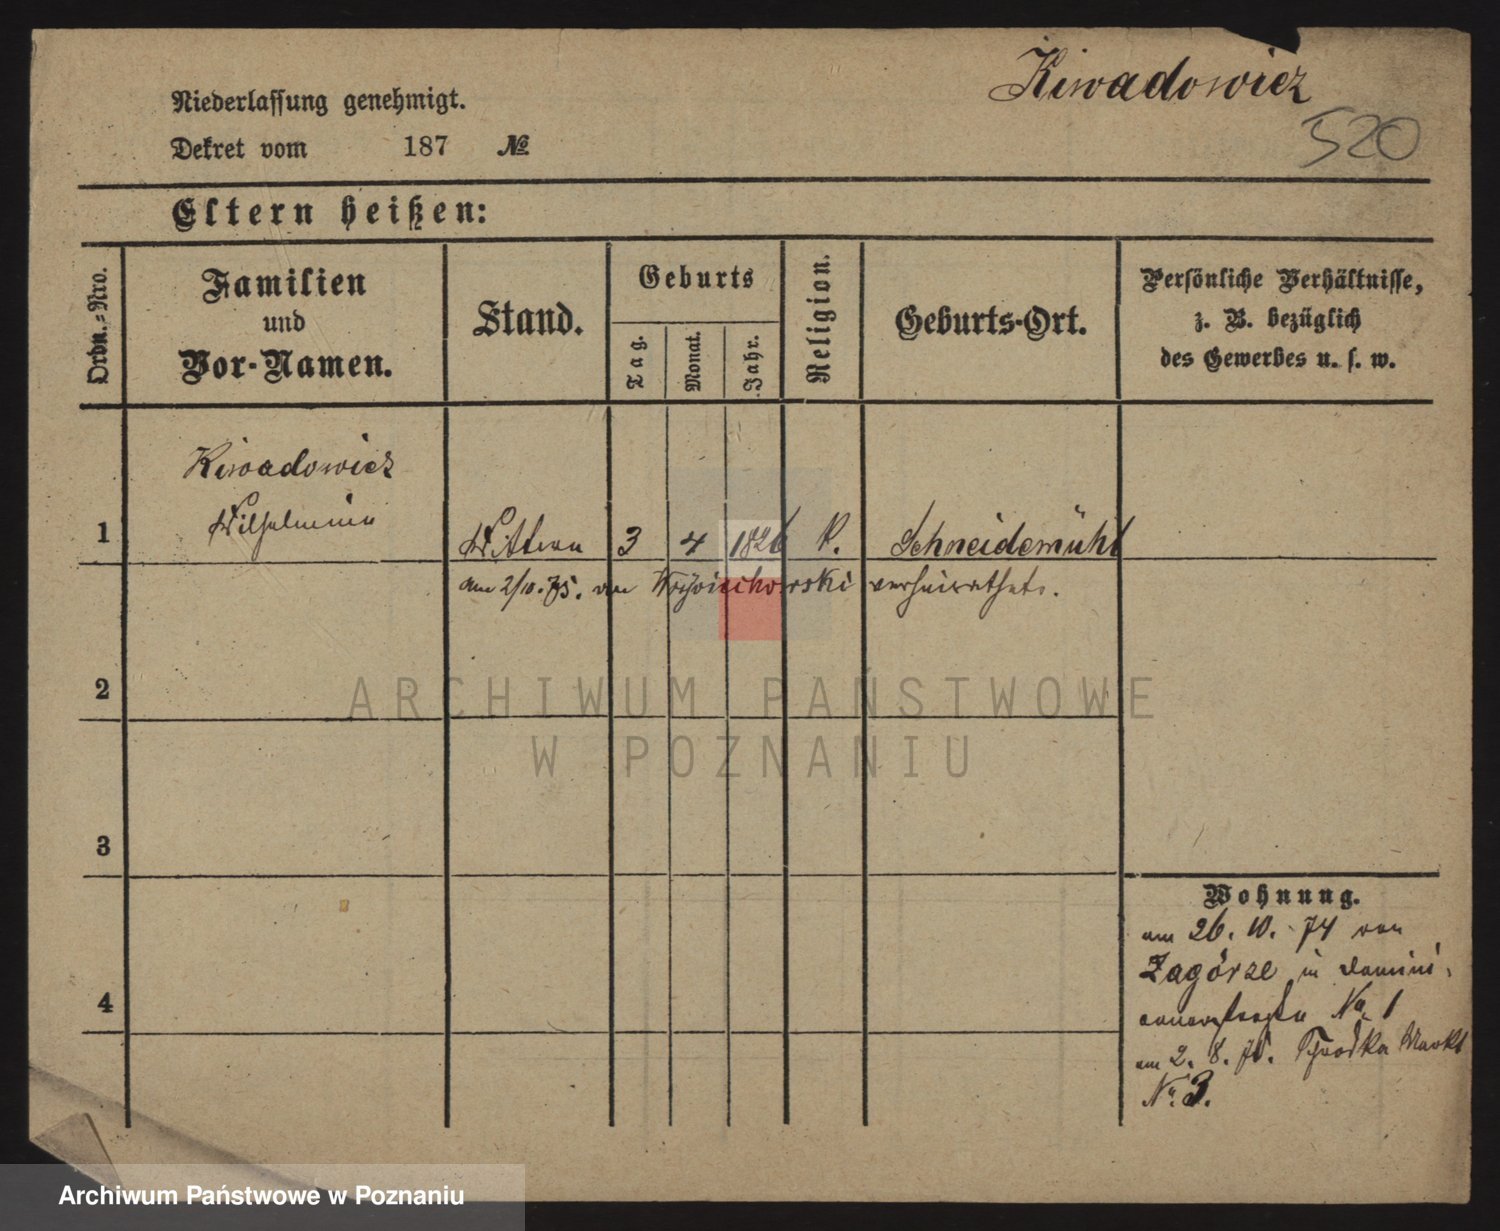 Kiwadowicz
520
Niederlassung genehmigt.
Dekret vom 187 №
Eltern heißen:
Ordn.-Nro.
Familien
und
Vor-Namen.
Stand.
Geburts
Tag.
Monat.
Jahr.
Religion.
Geburts-Ort.
Persönliche Verhältnisse,
z. B. bezüglich
des Gewerbes u. s. w.
Kiwadowicz
Wilhelmine
1 Wittwe 3 4 1826 K. Schneidemühl
am 2/10. 75. verheirathete.
2
3
4
Wohnung.
am 26. 10. 74 von
Zagórze in Domini-
canerstraße No. 1
am 2. 8. 75. Schrodka Markt
No. 3.
ARCHIWUM PAŃSTWOWE
W POZNANIU
Archiwum Państwowe w Poznaniu